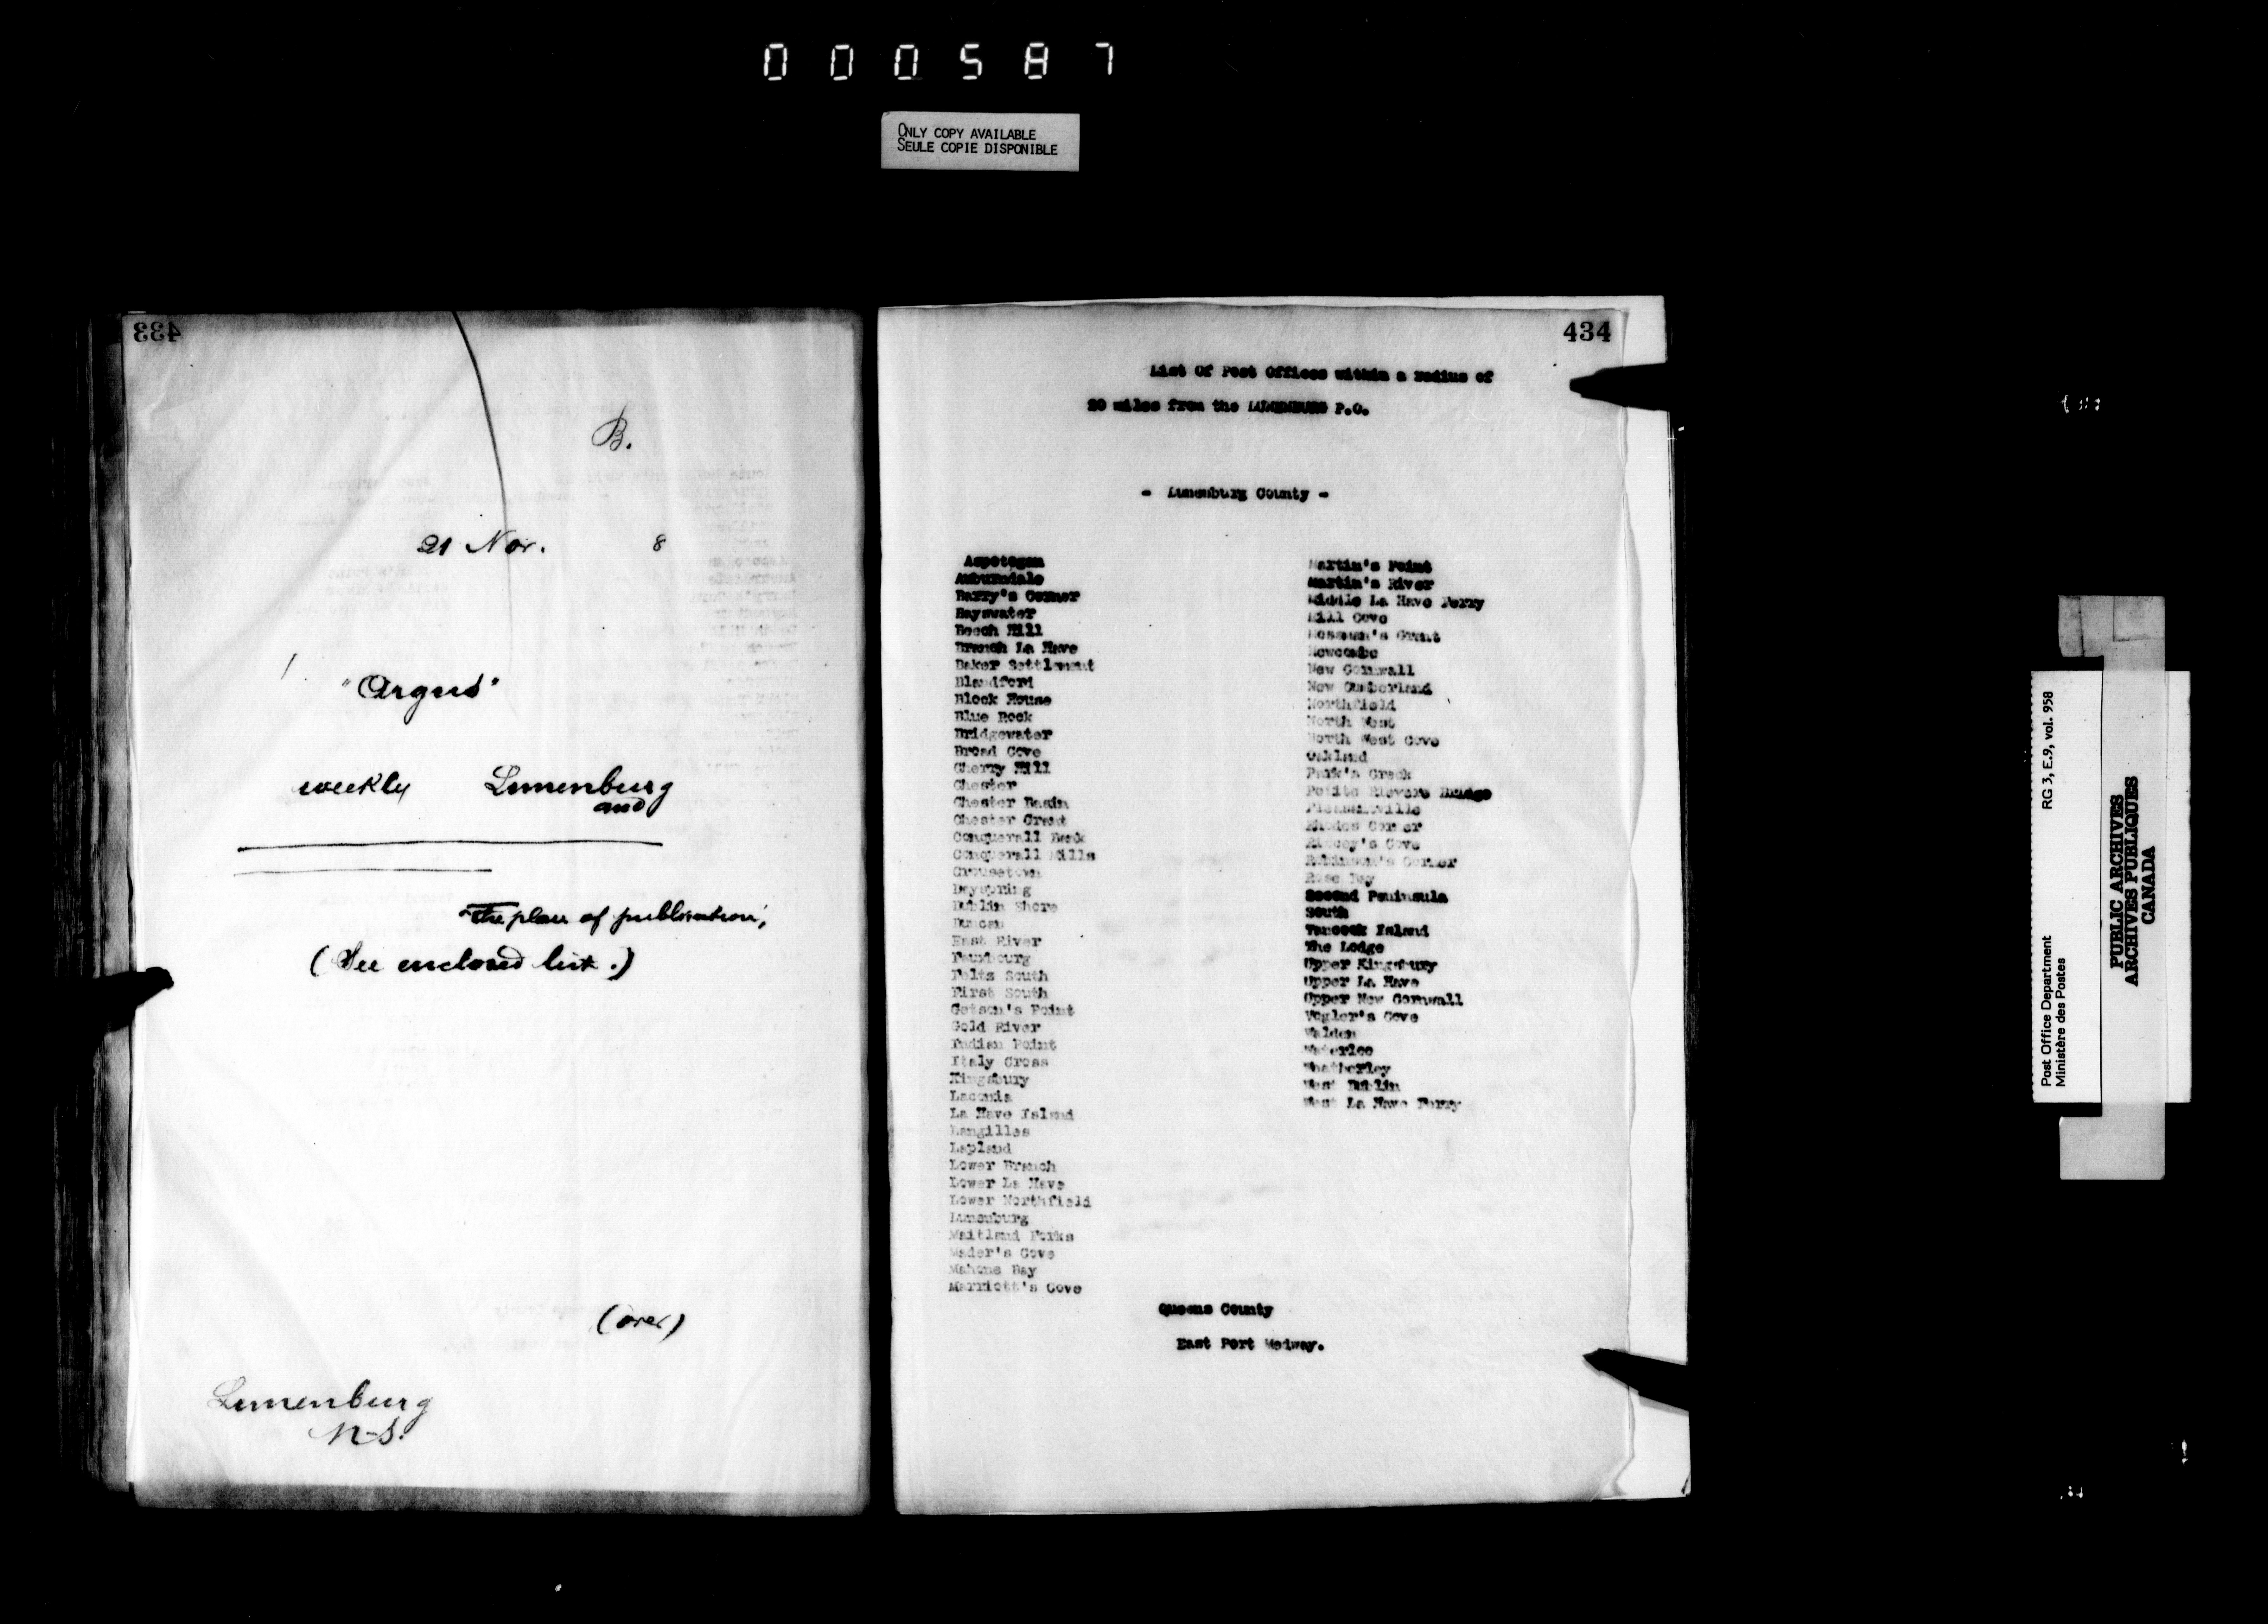 000587
ONLY COPY AVAILABLE
SEULE COPIE DISPONIBLE
433
B.
21 Nov. 8
"Argus"
weekly Lunenburg
and
"The place of publication,
(See enclosed list.)
(over)
Lunenburg
N-S.
434
List Of Post Offices within a radius of
20 miles from the LUNENBURG P.O.
- Lunenburg County -
Aspotogan
Auburndale
Barry's Corner
Bayswater
Beech Hill
Branch La Have
Baker Settlement
Blandford
Block House
Blue Rock
Bridgewater
Broad Cove
Cherry Hill
Chester
Chester Basin
Chester Grant
Conquerall Bank
Conquerall Mills
Crousetown
Dayspring
Dublin Shore
Duncan
East River
Fauxburg
Felts South
First South
Getson's Point
Gold River
Indian Point
Italy Cross
Kingsbury
Laconia
La Have Island
Langilles
Lapland
Lower Branch
Lower La Have
Lower Northfield
Lunenburg
Maitland Forks
Mader's Cove
Mahone Bay
Marriott's Cove
Martin's Point
Martin's River
Middle La Have Ferry
Mill Cove
Mossman's Grant
Newcombe
New Cornwall
New Cumberland
Northfield
North West
North West Cove
Oakland
Park's Creek
Petite Riviere Bridge
Pleasantville
Rhodes Corner
Ritcey's Cove
Robinson's Corner
Rose Bay
Second Peninsula
South
Tancook Island
The Lodge
Upper Kingsbury
Upper La Have
Upper New Cornwall
Vogler's Cove
Walden
Waterloo
Whatherley
West Dublin
West La Have Ferry
Queens County
East Port Medway.
Post Office Department RG 3, E.9, vol. 958
Ministère des Postes
PUBLIC ARCHIVES
ARCHIVES PUBLIQUES
CANADA